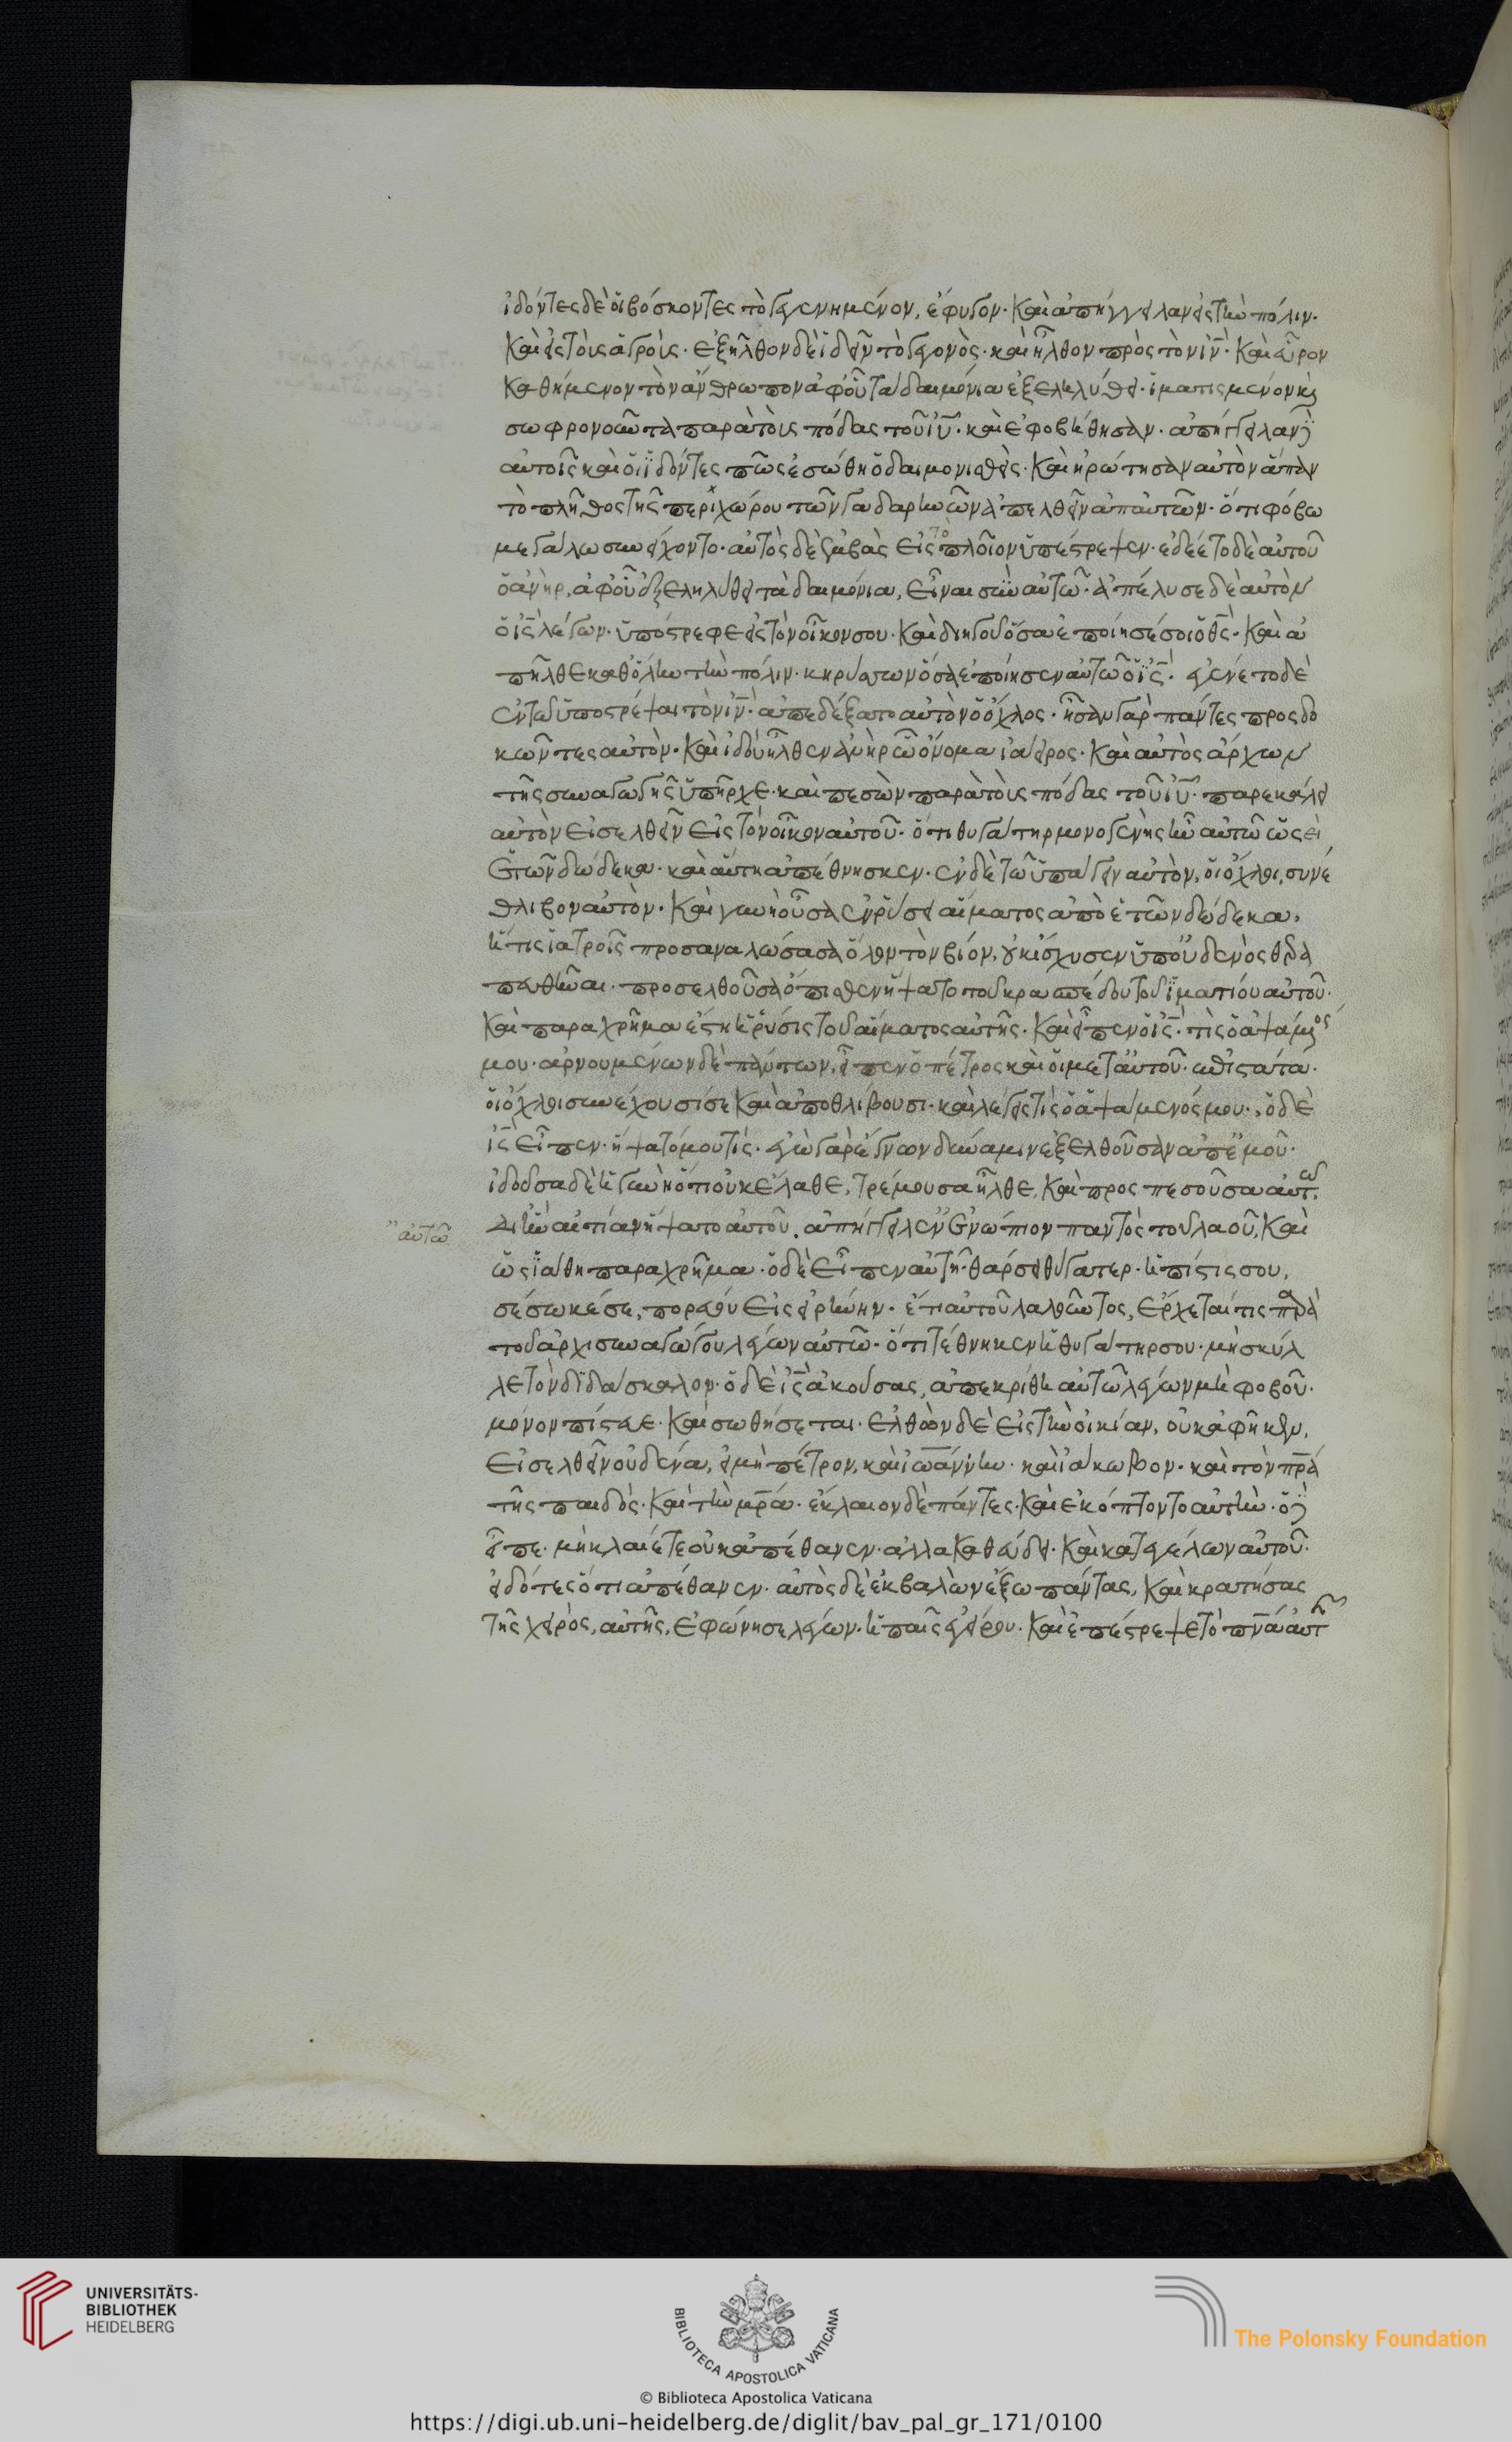 ἰδόντες δὲ οἱ βόσκοντες τὸ γεγενημένον, ἔφυγον· καὶ ἀπήγγειλαν εἰς τὴν πόλιν·
καὶ εἰς τοὺς ἀγρούς· ἐξῆλθον δὲ ἰδεῖν τὸ γεγονὸς· καὶ ἦλθον πρὸς τὸν ιν̅· καὶ εὗρον
καθήμενον τὸν ἄνθρωπον ἀφ' οὗ τὰ δαιμόνια ἐξεληλύθει· ἱματισμένον κ̀
σωφρονοῦντα παρὰ τοὺς πόδας τοῦ ιυ̅· καὶ ἐφοβήθησαν· ἀπήγγειλαν δὲ
αὐτοῖς καὶ οἱ ἰδόντες πῶς ἐσώθη ὁ δαιμονισθείς· καὶ ἠρώτησαν αὐτὸν ἅπαν
τὸ πλῆθος τῆς περιχώρου τῶν γαδαρηνῶν ἀπελθεῖν ἀπ' αὐτῶν· ὅτι φόβω
μεγάλω συνείχοντο· αὐτὸς δὲ ἐμβὰς εἰς τὸ πλοῖον ὑπέστρεψεν· ἐδέετο δὲ αὐτοῦ
ὁ ἀνὴρ, ἀφ' οὗ ἐξεληλύθει τὰ δαιμόνια, εἶναι σὺν αὐτῶ· ἀπέλυσε δὲ αὐτὸν
ὁ ις̅ λέγων· ὑπόστρεφε εἰς τὸν οἶκον σου· καὶ διηγοῦ ὅσα ἐποίησέ σοι ὁ θς̅· καὶ ἀ
πῆλθε καθ' ὅλην τὴν πόλιν· κηρύσσων ὅσα ἐποίησεν αὐτῶ ὁ ις̅· ἐγένετο δὲ
ἐν τῶ ὑποστρέψαι τὸν ιν̅· ἀπεδέξατο αὐτὸν ὁ ὄχλος· ἦσαν γὰρ πάντες προσδο
κῶντες αὐτὸν· καὶ ἰδοὺ ἦλθεν ἀνὴρ ὧ ὄνομα ἰάειρος· καὶ αὐτὸς ἄρχων
τῆς συναγωγῆς ὑπῆρχε· καὶ πεσὼν παρὰ τοὺς πόδας τοῦ ιυ̅· παρεκάλει
αὐτὸν εἰσελθεῖν εἰς τὸν οἶκον αὐτοῦ· ὅτι θυγάτηρ μονογενὴς ἦν αὐτῶ ὡσεὶ
ἐτῶν δώδεκα· καὶ αὕτη ἀπέθνησκεν· ἐν δὲ τῶ ὑπάγειν αὐτὸν, οἱ ὄχλοι, συνέ
θλιβον αὐτὸν· καὶ γυνὴ οὖσα ἐν ῥύσει αἵματος ἀπὸ ἐτῶν δώδεκα,
ἥτις ἰατροῖς προσαναλώσασα ὅλον τὸν βίον, οὐκ ἴσχυσεν ὑπ' οὐδενὸς θερα
πευθῆναι· προσελθοῦσα ὄπισθεν ἥψατο τοῦ κρασπέδου τοῦ ἱματίου αὐτοῦ·
καὶ παραχρῆμα ἔστη ἡ ῥύσις τοῦ αἵματος αὐτῆς· καὶ εἶπεν ὁ ις̅· τὶς ὁ ἁψάμενός
μου· ἀρνουμένων δὲ πάντων, εἶπεν ὁ πέτρος καὶ οἱ μετ' αὐτοῦ· ἐπιστάτα·
οἱ ὄχλοι συνέχουσί σε καὶ ἀποθλίβουσι· καὶ λέγεις τὶς ὁ ἁψάμενός μου·, ὁ δὲ
ις̅ εἶπεν· ἥψατό μου τίς· ἐγὼ γὰρ ἔγνων δύναμιν ἐξελθοῦσαν ἀπ' ἐμοῦ·
ἰδοῦσα δὲ ἡ γυνὴ ὅτι οὐκ ἔλαθε, τρέμουσα ἦλθε, καὶ προσπεσοῦσα αὐτῶ,
δι' ἣν αἰτίαν ἥψατο αὐτοῦ, ἀπήγγειλεν ἐνώπιον παντὸς τοῦ λαοῦ, καὶ
αὐτῶ
ὡς ἰάθη παραχρῆμα· ὁ δὲ εἶπεν αὐτῆ· θάρσει θύγατερ· ἡ πίστις σου,
σέσωκέ σε, πορεύου εἰς εἰρήνην· ἔτι αὐτοῦ λαλοῦντος, ἔρχεταί τις παρὰ
τοῦ ἀρχισυναγώγου λέγων αὐτῶ· ὅτι τέθνηκεν ἡ θυγάτηρ σου· μὴ σκύλ
λε τὸν διδάσκαλον· ὁ δὲ ις̅ ἀκούσας, ἀπεκρίθη αὐτῶ λέγων μὴ φοβοῦ·
μόνον πίστευε· καὶ σωθήσεται· ἐλθὼν δὲ εἰς τὴν οἰκίαν, οὐκ ἀφῆκεν,
εἰσελθεῖν οὐδένα, εἰ μὴ πέτρον, καὶ ἰωάννην· καὶ ἰάκωβον· καὶ τὸν πρ̅α
τῆς παιδὸς· καὶ τὴν μρ̅α· ἔκλαιον δὲ πάντες· καὶ ἐκόπτοντο αὐτὴν· ὁ δὲ
εἶπε· μὴ κλαίετε οὐκ ἀπέθανεν· ἀλλὰ καθεύδει· καὶ κατεγέλων αὐτοῦ·
εἰδότες ὅτι ἀπέθανεν· αὐτὸς δὲ ἐκβαλὼν ἔξω πάντας, καὶ κρατήσας
τῆς χειρὸς, αὐτῆς, ἐφώνησε λέγων· ἡ παῖς ἐγείρου· καὶ ἐπέστρεψε τὸ πνα̅ αὐτῆς
UNIVERSITÄTS-
BIBLIOTHEK
HEIDELBERG
BIBLIOTECA APOSTOLICA VATICANA
The Polonsky Foundation
© Biblioteca Apostolica Vaticana
https://digi.ub.uni-heidelberg.de/diglit/bav_pal_gr_171/0100